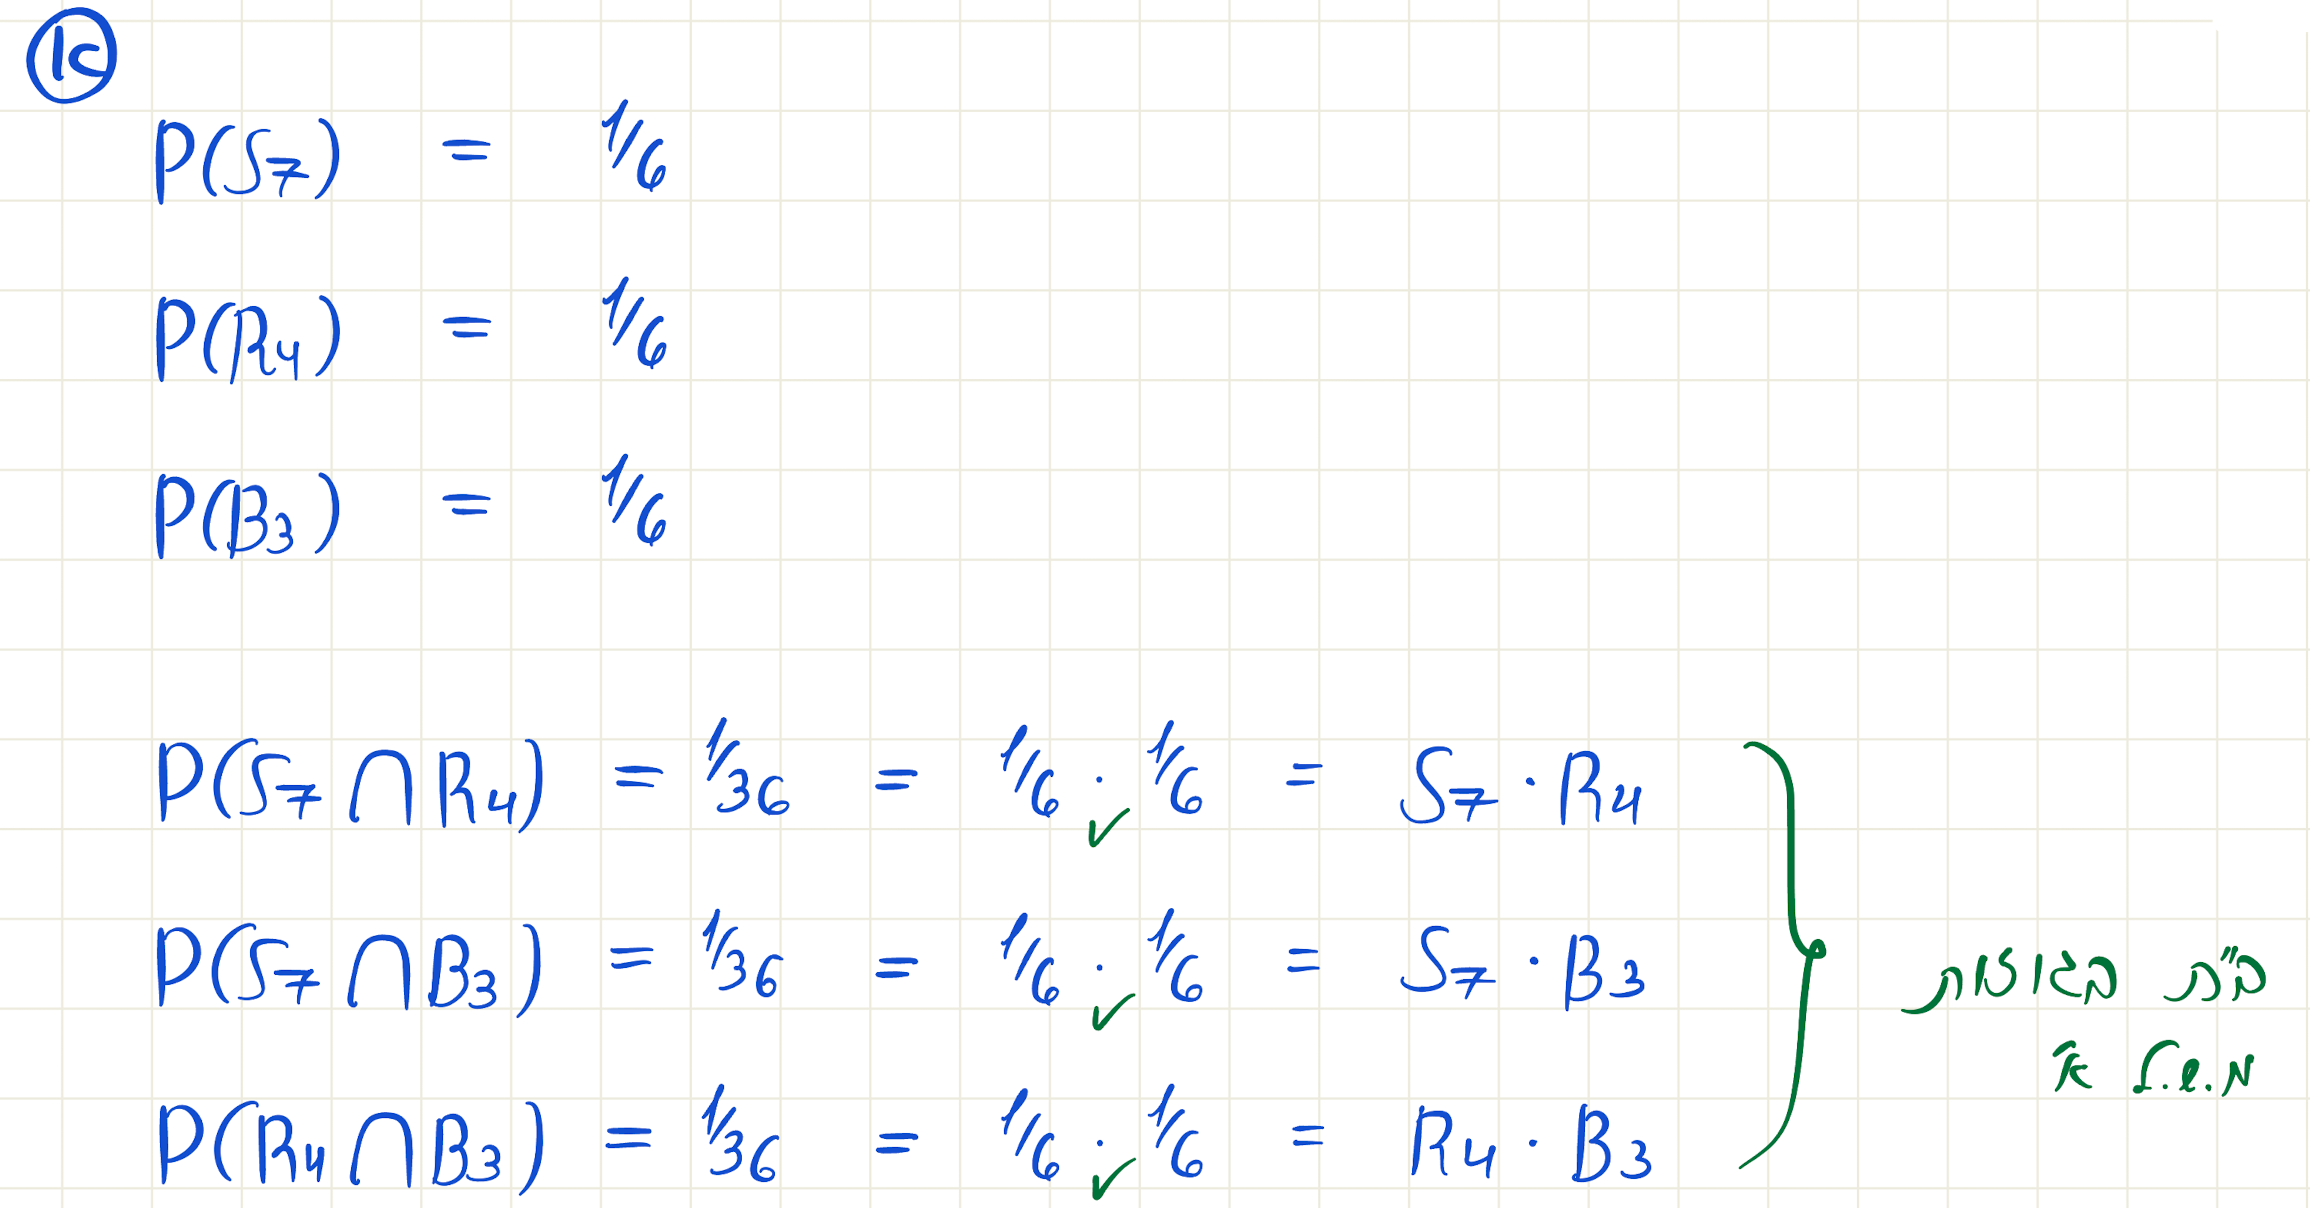 1c
P(S7) = 1/6
P(R4) = 1/6
P(B3) = 1/6
P(S7 ∩ R4) = 1/36 = 1/6 · 1/6 = S7 · R4
P(S7 ∩ B3) = 1/36 = 1/6 · 1/6 = S7 · B3
P(R4 ∩ B3) = 1/36 = 1/6 · 1/6 = R4 · B3